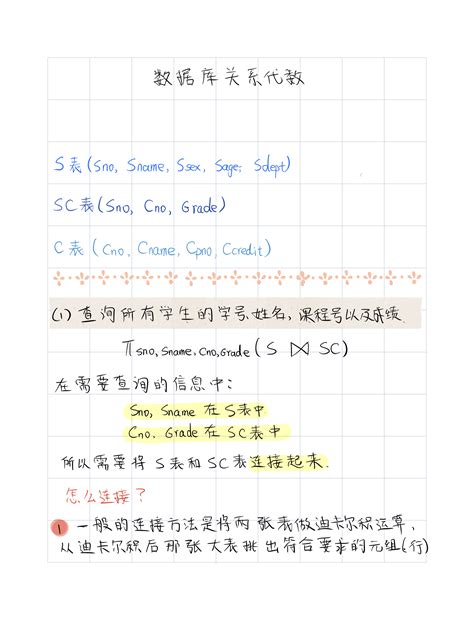 数据库关系代数
S表(Sno, Sname, Ssex, Sage, Sdept)
SC表(Sno, Cno, Grade)
C表(Cno, Cname, Cpno, Ccredit)
(1)查询所有学生的学号、姓名,课程号以及成绩.
π Sno, Sname, Cno, Grade (S ⋈ SC)
在需要查询的信息中:
Sno, Sname 在S表中
Cno, Grade 在SC表中
所以需要将S表和SC表连接起来.
怎么连接?
1 一般的连接方法是将两张表做迪卡尔积运算,
从迪卡尔积后那张大表挑出符合要求的元组(行)